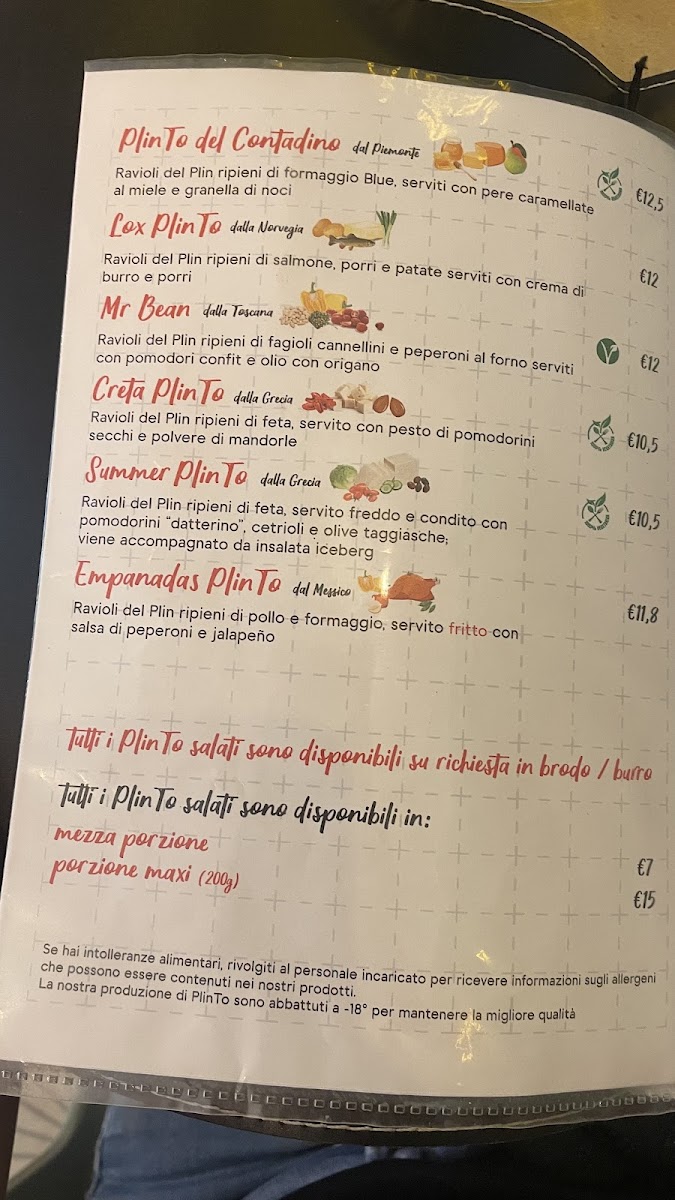 PlinTo del Contadino dal Piemonte
Ravioli del Plin ripieni di formaggio Blue, serviti con pere caramellate €12,5
al miele e granella di noci
Lox PlinTo dalla Norvegia
Ravioli del Plin ripieni di salmone, porri e patate serviti con crema di €12
burro e porri
Mr Bean dalla Toscana
Ravioli del Plin ripieni di fagioli cannellini e peperoni al forno serviti €12
con pomodori confit e olio con origano
Creta PlinTo dalla Grecia
Ravioli del Plin ripieni di feta, servito con pesto di pomodorini €10,5
secchi e polvere di mandorle
Summer PlinTo dalla Grecia
Ravioli del Plin ripieni di feta, servito freddo e condito con €10,5
pomodorini “datterino”, cetrioli e olive taggiasche;
viene accompagnato da insalata iceberg
Empanadas PlinTo dal Messico
Ravioli del Plin ripieni di pollo e formaggio, servito fritto con €11,8
salsa di peperoni e jalapeño
Tutti i PlinTo salati sono disponibili su richiesta in brodo / burro
Tutti i PlinTo salati sono disponibili in:
mezza porzione €7
porzione maxi (200g) €15
Se hai intolleranze alimentari, rivolgiti al personale incaricato per ricevere informazioni sugli allergeni
che possono essere contenuti nei nostri prodotti.
La nostra produzione di PlinTo sono abbattuti a -18° per mantenere la migliore qualità